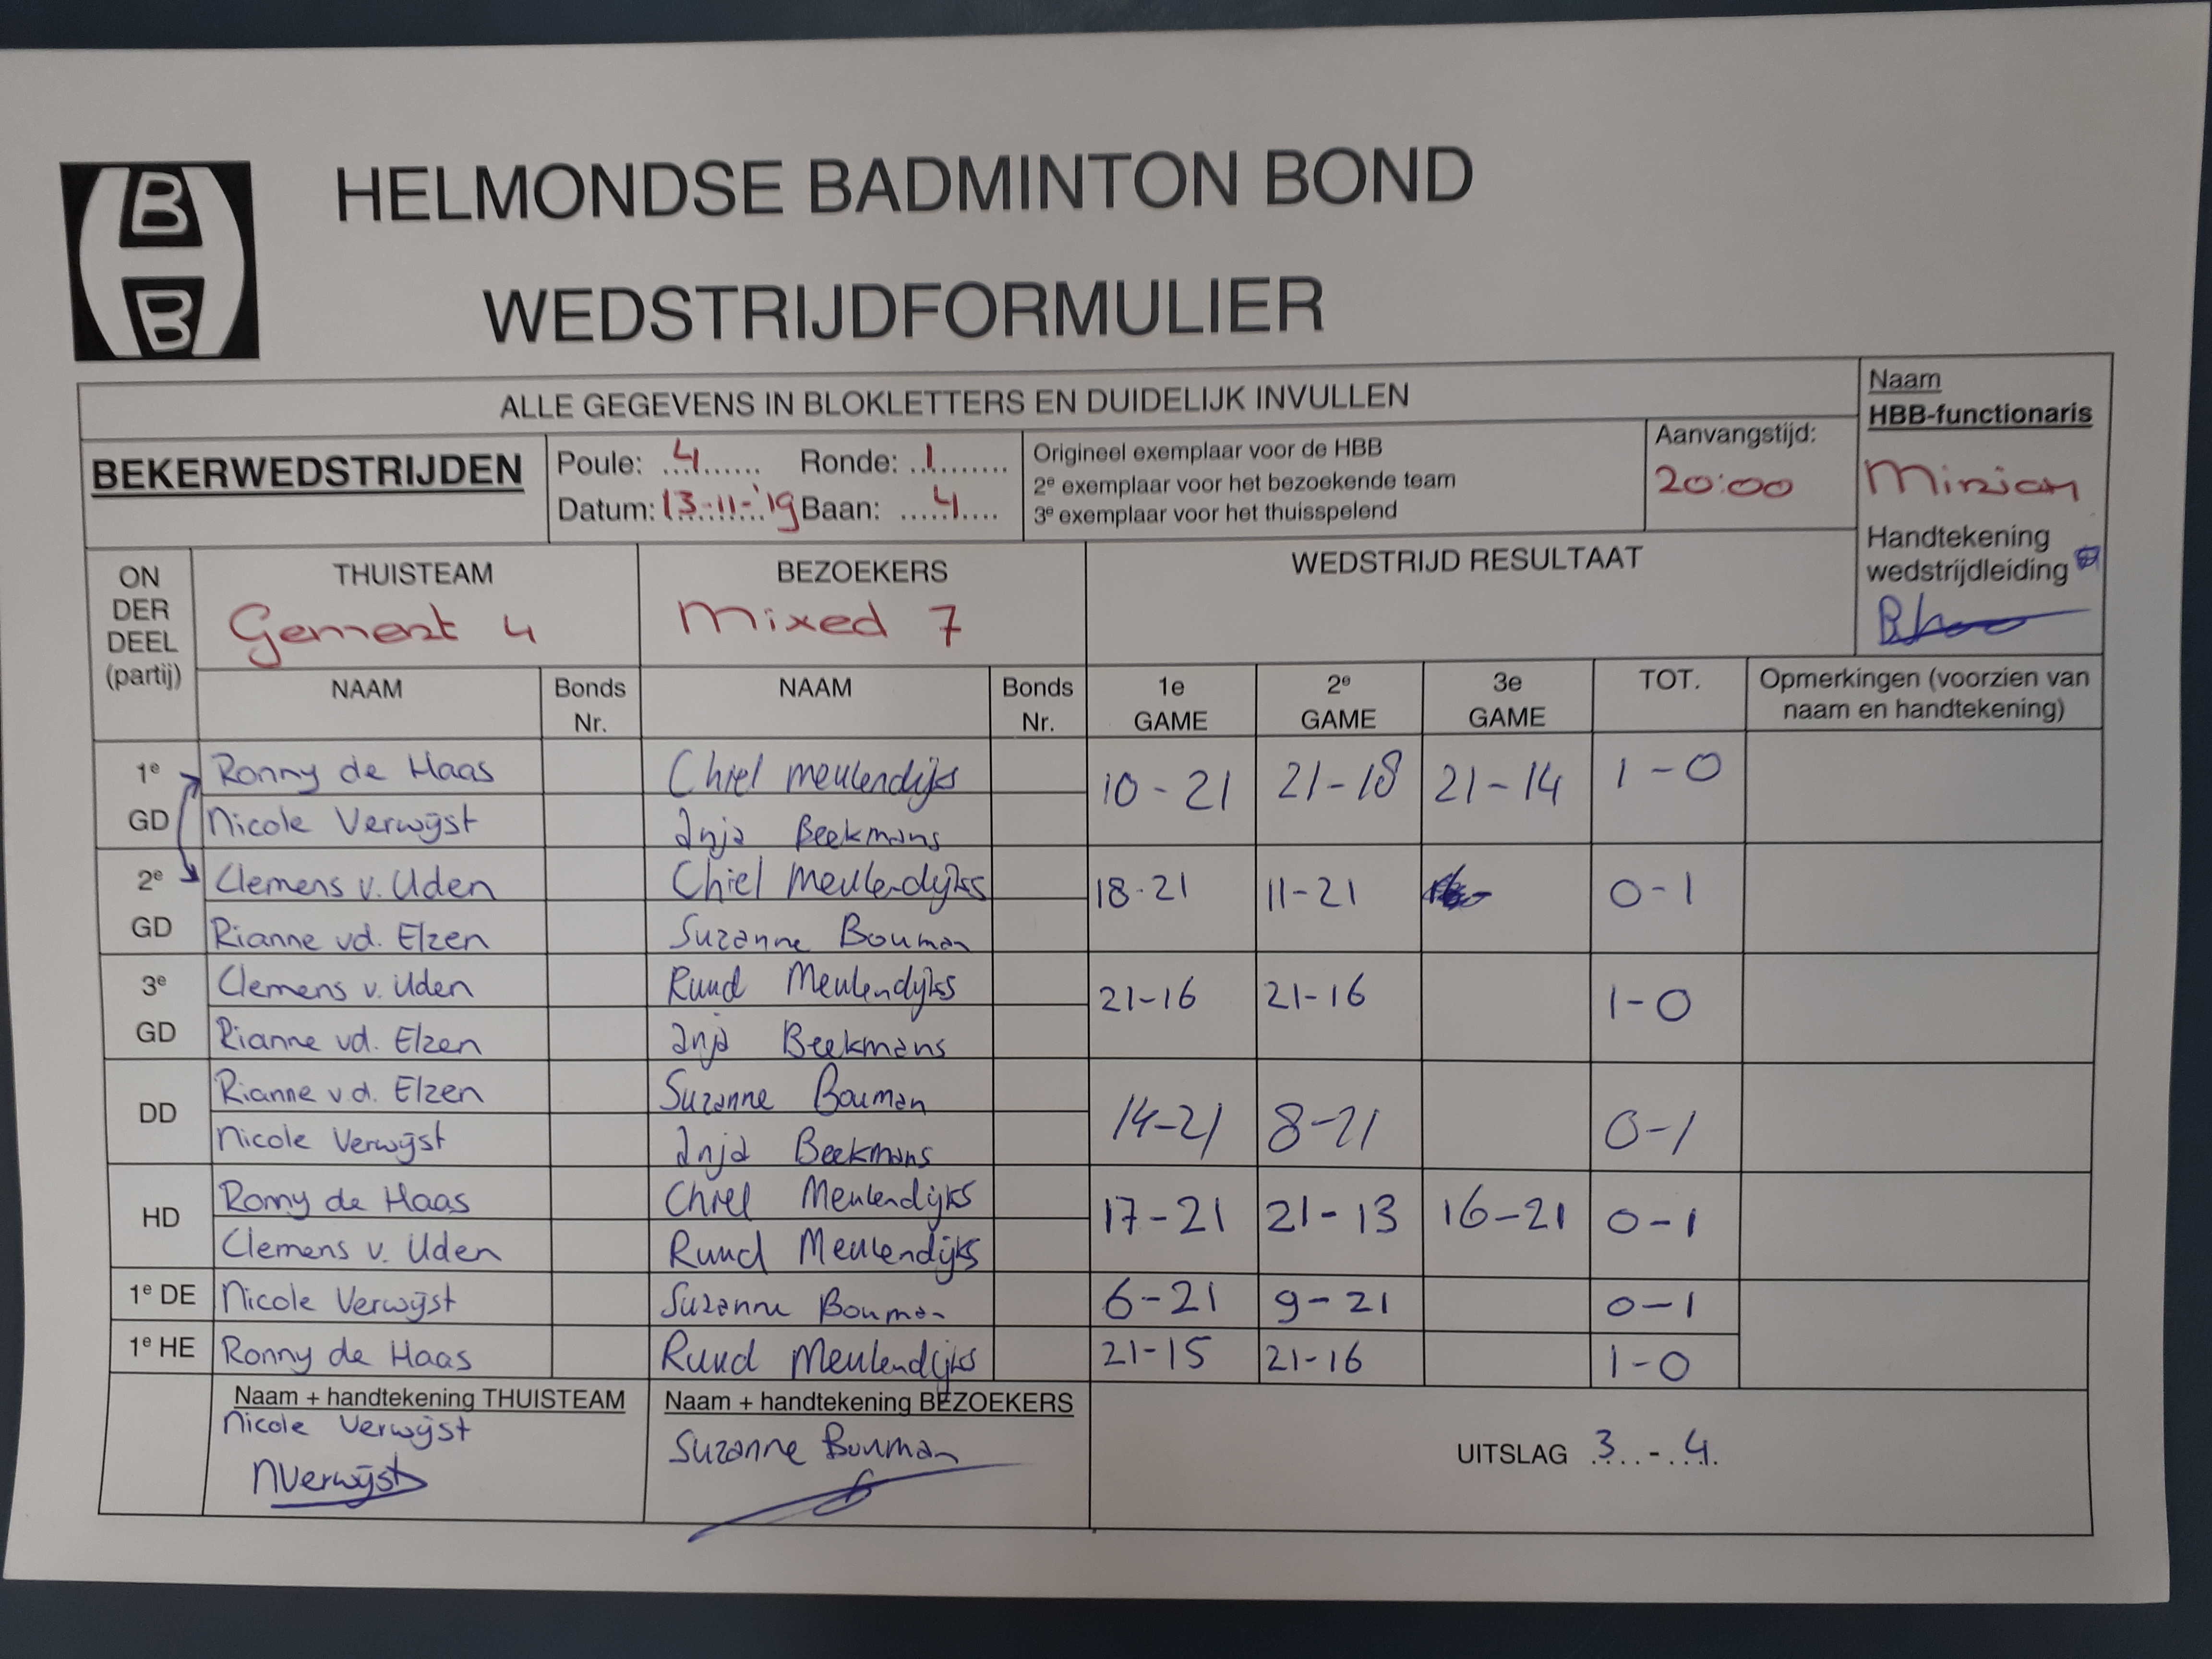 HBB
HELMONDSE BADMINTON BOND
WEDSTRIJDFORMULIER
ALLE GEGEVENS IN BLOKLETTERS EN DUIDELIJK INVULLEN
Naam
HBB-functionaris
Mirjam
Handtekening
wedstrijdleiding
BEKERWEDSTRIJDEN
Poule: 4 Ronde: 1
Datum: 13-11-'19 Baan: 4
Origineel exemplaar voor de HBB
2e exemplaar voor het bezoekende team
3e exemplaar voor het thuisspelend
Aanvangstijd:
20:00
ON
DER
DEEL
(partij)
THUISTEAM
Gemert 4
BEZOEKERS
Mixed 7
WEDSTRIJD RESULTAAT
NAAM Bonds Nr. NAAM Bonds Nr. 1e GAME 2e GAME 3e GAME TOT. Opmerkingen (voorzien van naam en handtekening)
1e Ronny de Haas Chiel Meulendijks 10-21 21-18 21-14 1-0
GD Nicole Verwijst Anja Beekmans
2e Clemens v. Uden Chiel Meulendijks 18-21 11-21 0-1
GD Rianne vd. Elzen Suzanne Bouman
3e Clemens v. Uden Ruud Meulendijks 21-16 21-16 1-0
GD Rianne vd. Elzen Anja Beekmans
DD Rianne v.d. Elzen Suzanne Bouman 14-21 8-21 0-1
Nicole Verwijst Anja Beekmans
HD Ronny de Haas Chiel Meulendijks 17-21 21-13 16-21 0-1
Clemens v. Uden Ruud Meulendijks
1e DE Nicole Verwijst Suzanne Bouman 6-21 9-21 0-1
1e HE Ronny de Haas Ruud Meulendijks 21-15 21-16 1-0
Naam + handtekening THUISTEAM
Nicole Verwijst
NVerwijst
Naam + handtekening BEZOEKERS
Suzanne Bouman
UITSLAG 3 - 4